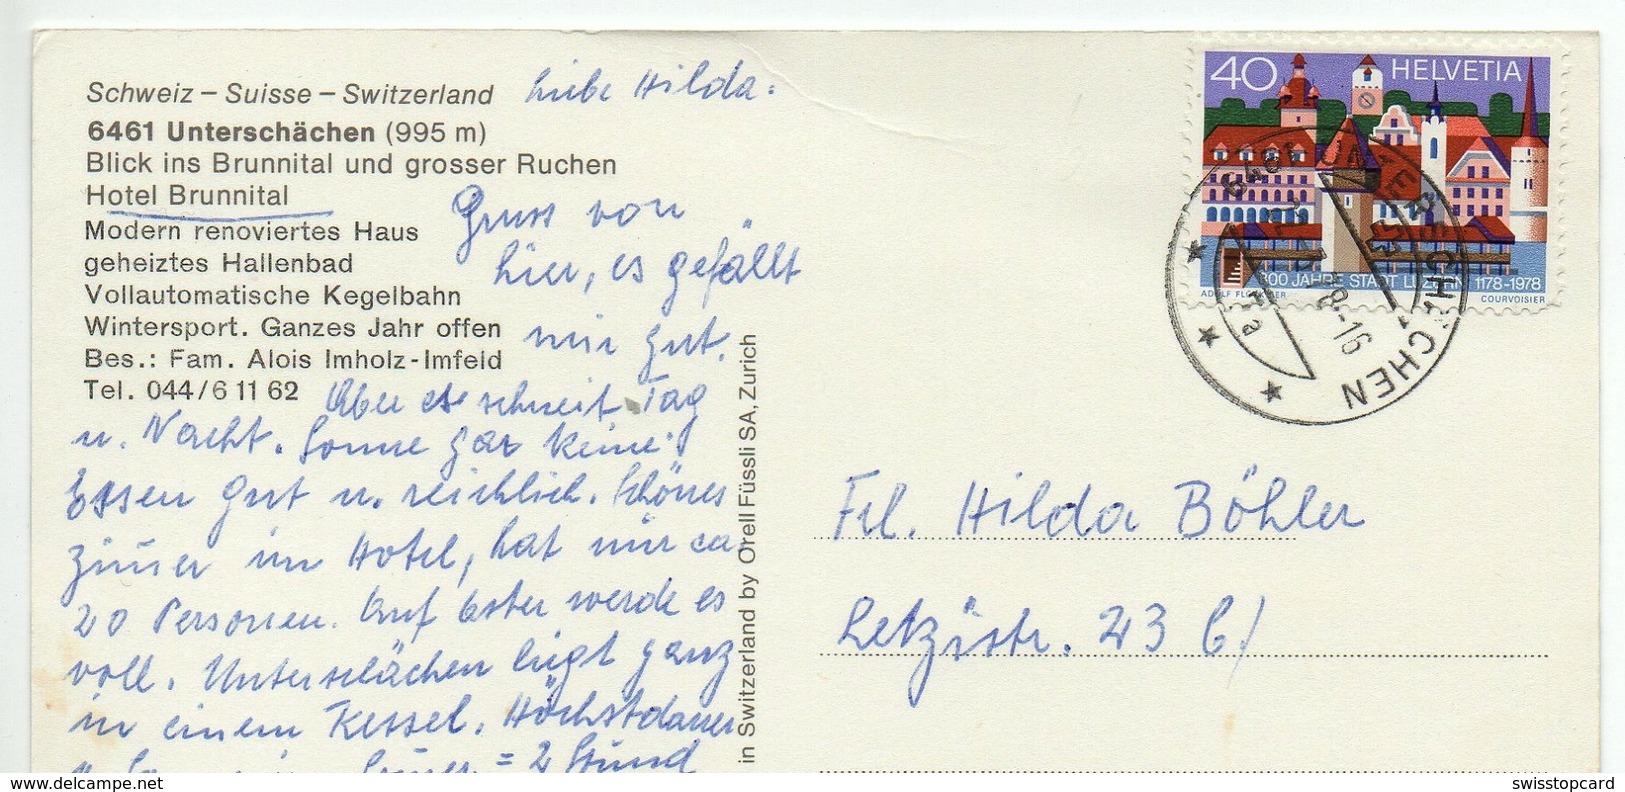 Schweiz – Suisse – Switzerland
6461 Unterschächen (995 m)
Blick ins Brunnital und grosser Ruchen
Hotel Brunnital
Modern renoviertes Haus
geheiztes Hallenbad
Vollautomatische Kegelbahn
Wintersport. Ganzes Jahr offen
Bes.: Fam. Alois Imholz-Imfeld
Tel. 044/6 11 62
Liebe Hilda:
Gruss von
hier, es gefällt
mir gut.
Aber es schneit Tag
u. Nacht. Sonne gar keine!
Essen gut u. reichlich. Schönes
Zimer im Hotel, hat nur ca
20 Personen. Auf Oster werde es
voll. Unterschächen liegt ganz
in einem Kessel. Höchstdauer
= 2 Stund
in Switzerland by Orell Füssli SA, Zurich
40 HELVETIA
800 JAHRE STADT LUZERN 1178-1978
ADOLF COURVOISIER
UNTERSCHÄCHEN
78-16
Frl. Hilda Böhler
Letzistr. 23 b/
delcampe.net
swisstopcard